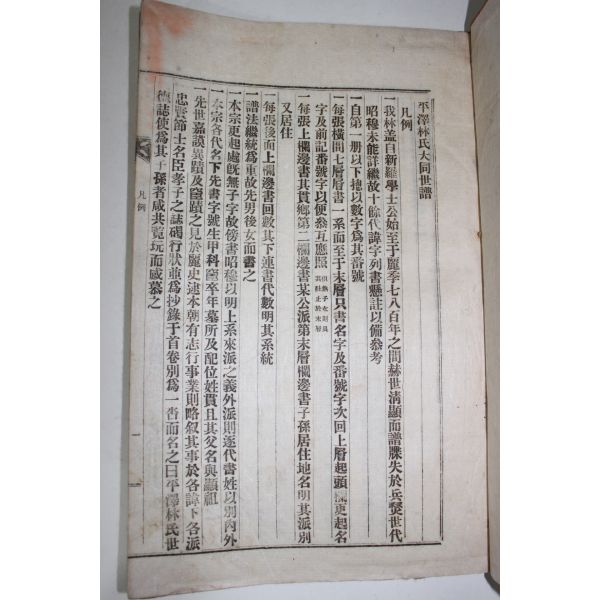 平澤林氏大同世譜
凡例
一我林盖自新羅學士公始至于麗季七八百年之間赫世淸顯而譜牒失於兵燹世代
昭穆未能詳繼故十餘代諱字列書懸註以備叅考
一自第一册以下摠以數字爲其番號
一每張橫間七層層書一系而至于末層只書名字及番號字次回上層起頭橫更起名
字及前記番號字以便叅互應照
一每張上欄邊書其貫鄕第二欄邊書某公派第末層欄邊書子孫居住地名明其派別
又居住
一每張後面上欄邊書回數其下連書代數明其系統
一譜法繼統爲重故先男後女而書之
一本宗更起處旣無子字故傍書昭穆以明上系來派之義外派則逐代書姓以別內外
一本宗各代名下先書字號生甲科宦卒年墓所及配位姓貫且其父名與顯祖
一先世嘉謨異蹟及窆蹟之見於麗史逮本朝有志行事業則略叙其事於各諱下各派
忠賢節士名臣孝子之誌碣行狀並爲抄錄于首卷別爲一呇而名之曰平澤林氏世
德誌使爲其子孫者咸共覽玩而感慕之
凡例
一